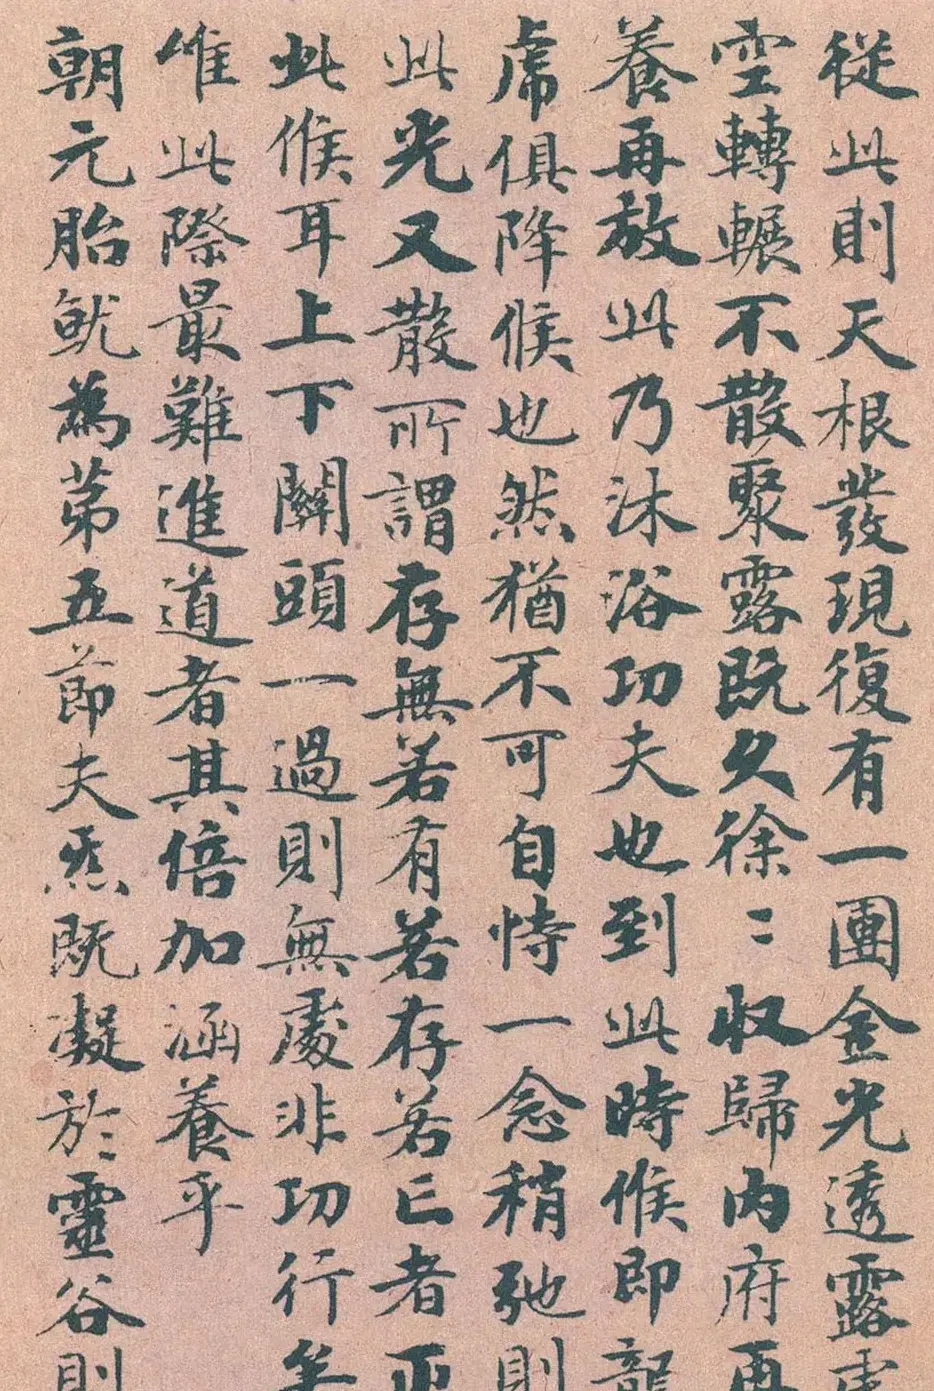 從此則天根發現復有一團金光透露虛
空轉輾不散聚露既久徐〻收歸内府再
養再放此乃沐浴功夫也到此時候即龍
虎俱降候也然猶不可自恃一念稍弛則
此光又散所謂存無若有若存若亡者正
此候耳上下關頭一過則無處非功行矣
唯此際最難進道者其倍加涵養乎
朝元胎就為第五節夫炁既凝於靈谷則